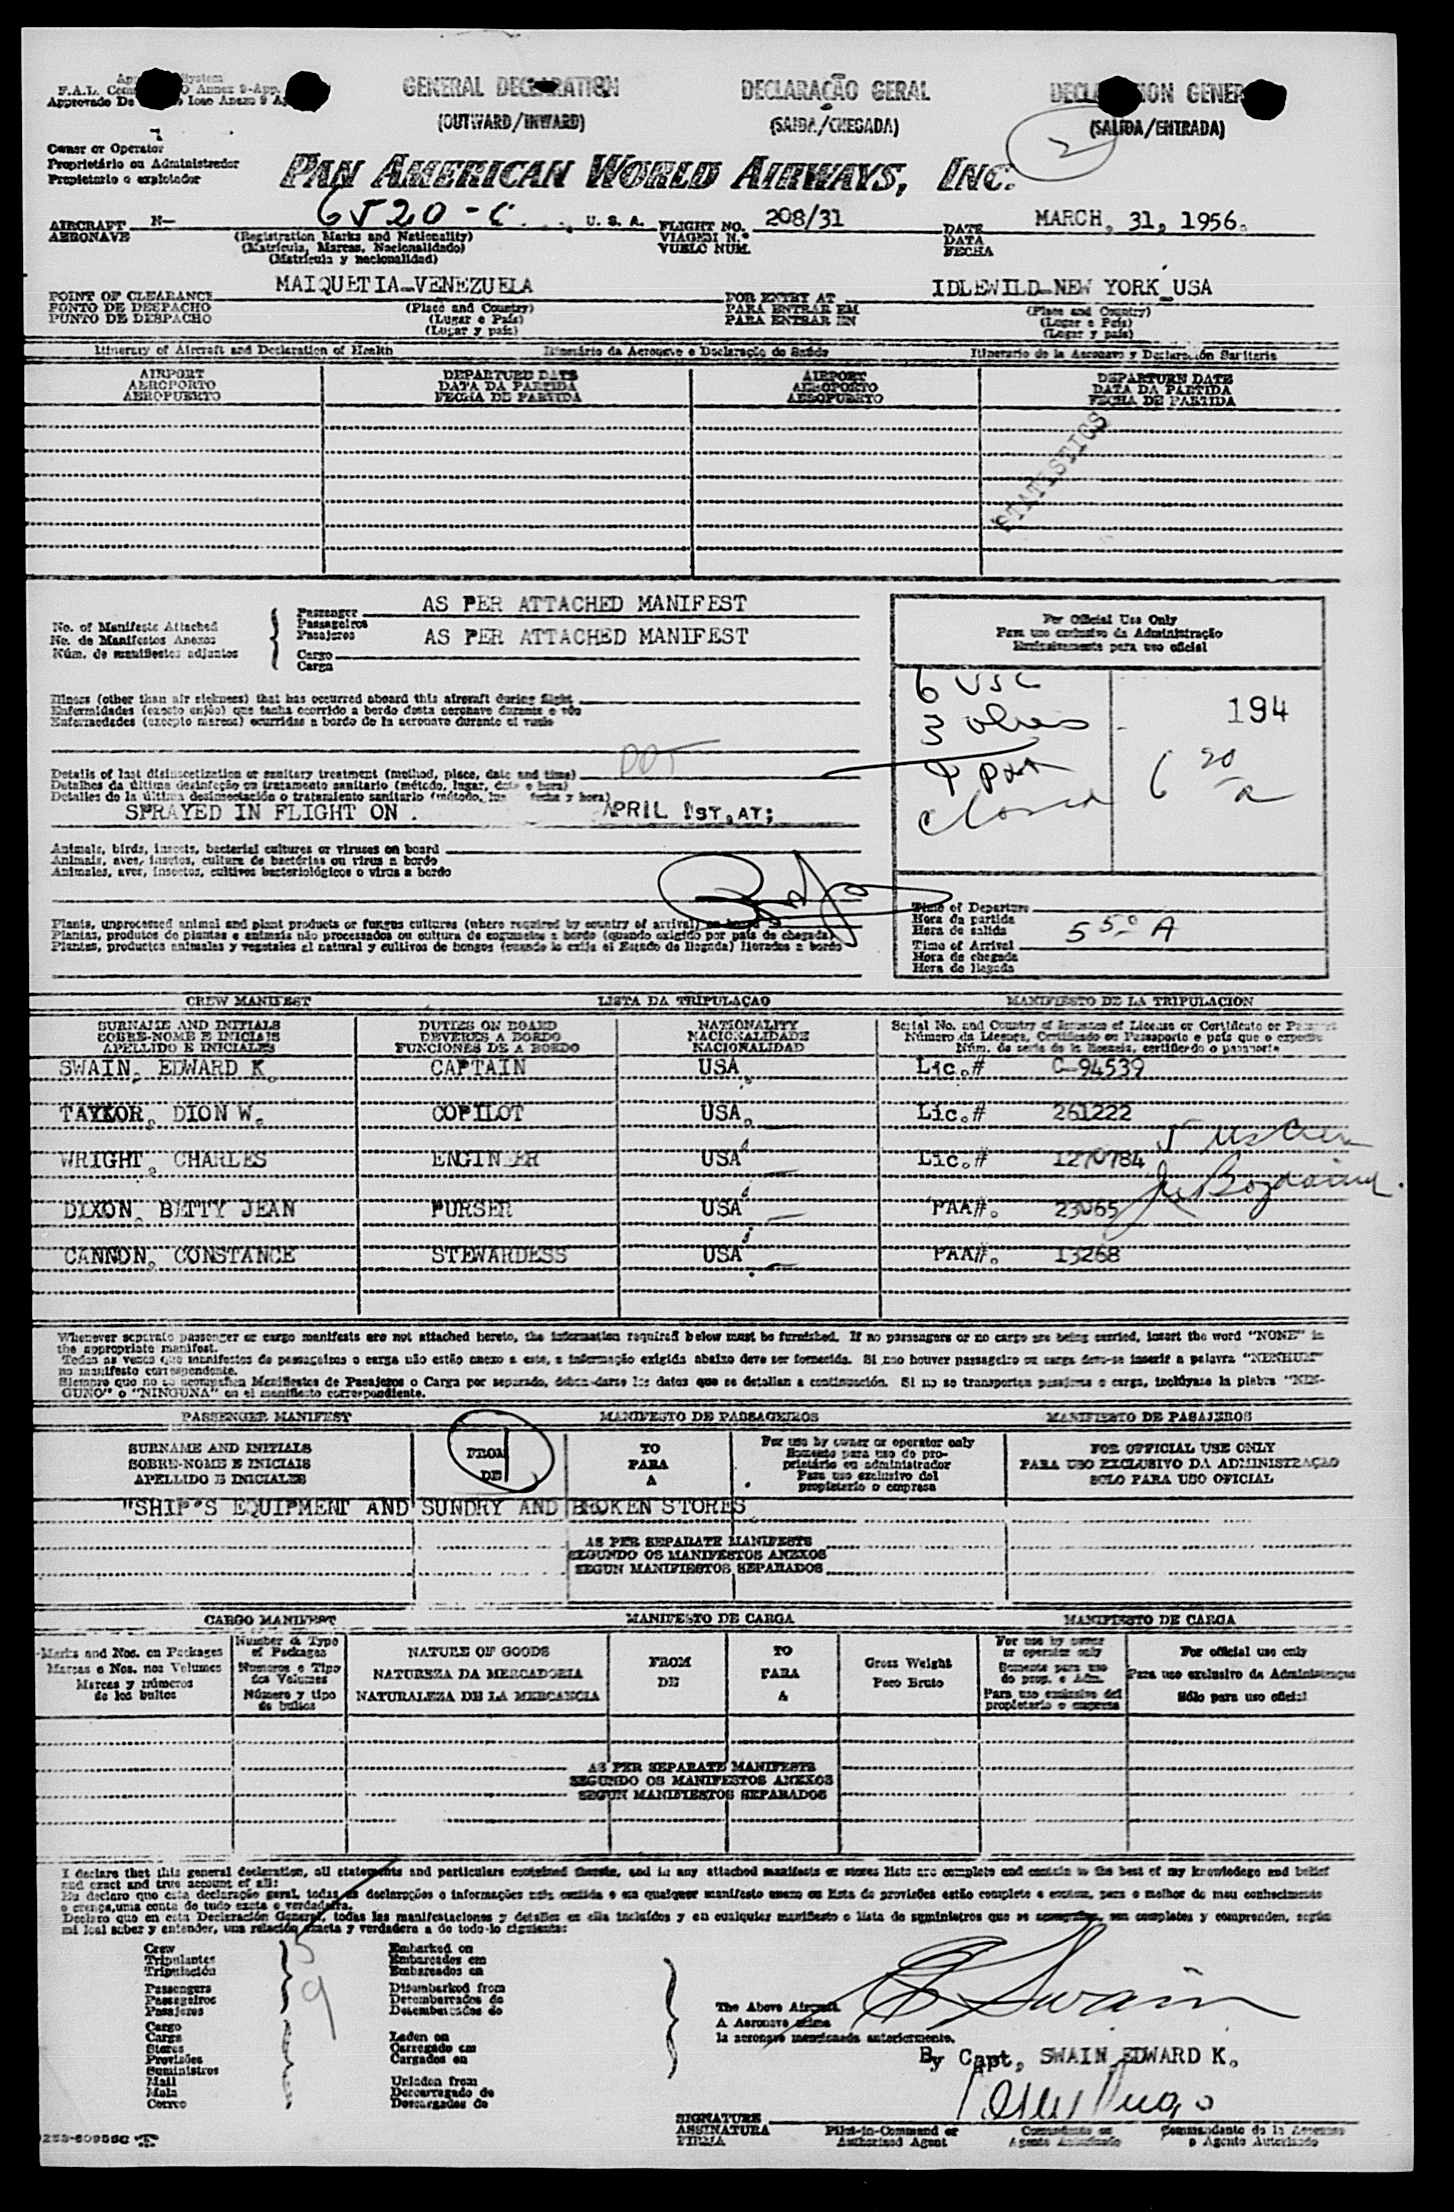 GENERAL DECLARATION
DECLARAÇÃO GERAL
(OUTWARD/INWARD)
(SAIDA/CHEGADA)
(SALIDA/ENTRADA)
2
Owner or Operator
Proprietário ou Administrador
Propietario o explotador
PAN AMERICAN WORLD AIRWAYS, INC.
AIRCRAFT N- 6520-C U. S. A. FLIGHT NO. 208/31 DATE MARCH, 31, 1956.
AERONAVE (Registration Marks and Nationality) VIAGEM N.º DATA
(Matrícula, Marcas, Nacionalidade) VUELO NUM. FECHA
(Matrícula y nacionalidad)
POINT OF CLEARANCE MAIQUETIA-VENEZUELA FOR ENTRY AT IDLEWILD-NEW YORK USA
PONTO DE DESPACHO (Place and Country) PARA ENTRAR EM (Place and Country)
PUNTO DE DESPACHO (Lugar e País) PARA ENTRAR EN (Lugar e País)
(Lugar y país) (Lugar y país)
Itinerary of Aircraft and Declaration of Health Itinerário da Aeronave e Declaração de Saúde Itinerario de la Aeronave y Declaración Sanitaria
AIRPORT DEPARTURE DATE AIRPORT DEPARTURE DATE
AEROPORTO DATA DA PARTIDA AEROPORTO DATA DA PARTIDA
AEROPUERTO FECHA DE PARTIDA AEROPUERTO FECHA DE PARTIDA
STATISTICS
No. of Manifests Attached Passenger AS PER ATTACHED MANIFEST
No. de Manifestos Anexos Passageiros
Núm. de manifiestos adjuntos Pasajeros AS PER ATTACHED MANIFEST
Cargo
Carga
For Official Use Only
Para uso exclusivo da Administração
Exclusivamente para uso oficial
6 USC
3 aliens
9 pax
closed
194
6 20 a
Illness (other than air sickness) that has occurred aboard this aircraft during flight
Enfermidades (exceto enjôo) que tenha ocorrido a bordo desta aeronave durante o vôo
Enfermedades (excepto mareos) ocurridas a bordo de la aeronave durante el vuelo
DDT
Details of last disinsectization or sanitary treatment (method, place, date and time)
Detalhes da última desinfeção ou tratamento sanitario (método, lugar, data e hora)
Detalles de la última desinsectación o tratamiento sanitario (método, fecha y hora)
SPRAYED IN FLIGHT ON . APRIL 1ST, AT;
Animals, birds, insects, bacterial cultures or viruses on board
Animais, aves, insetos, cultura de bactérias ou virus a bordo
Animales, aves, insectos, cultivos bacteriológicos o virus a bordo
Plants, unprocessed animal and plant products or fungus cultures (where required by country of arrival) on board
Plantas, produtos de plantas e animais não processados ou cultura de cogumelos a bordo (quando exigido por país de chegada)
Plantas, productos animales y vegetales al natural y cultivos de hongos (cuando lo exija el Estado de llegada) llevados a bordo
Time of Departure
Hora da partida
Hora de salida
Time of Arrival 5 50 A
Hora de chegada
Hora de llegada
CREW MANIFEST LISTA DA TRIPULAÇAO MANIFIESTO DE LA TRIPULACION
SURNAME AND INITIALS DUTIES ON BOARD NATIONALITY Serial No. and Country of Issuance of License or Certificate or Passport
SOBRE-NOME E INICIAIS DEVERES A BORDO NACIONALIDADE Número da Licença, Certificado ou Passaporte e país que o expediu
APELLIDO E INICIALES FUNCIONES DE A BORDO NACIONALIDAD Núm. de serie de la licencia, certificado o pasaporte
SWAIN, EDWARD K. CAPTAIN USA. Lic.# C-94539
TAYLOR, DION W. COPILOT USA. Lic.# 261222
WRIGHT, CHARLES ENGINEER USA Lic.# 1270784
5 US Crew
DIXON, BETTY JEAN PURSER USA PAA#. 23065
CANNON, CONSTANCE STEWARDESS USA PAA#. 13268
Whenever separate passenger or cargo manifests are not attached hereto, the information required below must be furnished. If no passengers or no cargo are being carried, insert the word "NONE" in
the appropriate manifest.
Todas as vezes que manifestos de passageiros o carga não estão anexo a este, a informação exigida abaixo deve ser fornecida. Si nao houver passageiro ou carga deve-se inserir a palavra "NENHUM"
no manifesto correspondente.
Siempre que no se acompañen Manifiestos de Pasajeros o Carga por separado, deben darse los datos que se detallan a continuación. Si no se transportan pasajeros o carga, inclúyase la plabra "NIN-
GUNO" o "NINGUNA" en el manifiesto correspondiente.
PASSENGER MANIFEST MANIFESTO DE PASSAGEIROS MANIFIESTO DE PASAJEROS
SURNAME AND INITIALS FROM TO For use by owner or operator only FOR OFFICIAL USE ONLY
SOBRE-NOME E INICIAIS DE PARA Somente para uso de pro- PARA USO EXCLUSIVO DA ADMINISTRAÇAO
APELLIDO E INICIALES A prietário ou administrador SOLO PARA USO OFICIAL
Para uso exclusivo del
propietario o empresa
"SHIP'S EQUIPMENT AND SUNDRY AND BROKEN STORES
AS PER SEPARATE MANIFESTS
SEGUNDO OS MANIFESTOS ANEXOS
SEGUN MANIFIESTOS SEPARADOS
CARGO MANIFEST MANIFESTO DE CARGA MANIFIESTO DE CARGA
Marks and Nos. on Packages Number & Type of Packages NATURE OF GOODS FROM TO Gross Weight For use by owner or operator only For official use only
Marcas e Nos. nos Volumes Numeros e Tipo dos Volumes NATUREZA DA MERCADORIA DE PARA Peso Bruto Somente para uso do prop. e Adm. Para uso exclusivo da Administraçao
Marcas y números de los bultos Número y tipo de bultos NATURALEZA DE LA MERCANCIA A Para uso exclusivo del propietario o empresa Sólo para uso oficial
AS PER SEPARATE MANIFESTS
SEGUNDO OS MANIFESTOS ANEXOS
SEGUN MANIFIESTOS SEPARADOS
I declare that this general declaration, all statements and particulars contained therein, and in any attached manifests or stores lists are complete and contain to the best of my knowledege and belief
and exact and true account of all:
Eu declaro que esta declaração geral, todas as declarações e informações nela contida e em qualquer manifesto anexo ou lista de provisões estão complete e contem, para o melhor de meu conhecimento
e crença, uma conta de tudo exata e verdadeira.
Declaro que en esta Declaración General, todas las manifestaciones y detalles en ella incluídos y en cualquier manifiesto o lista de suministros que se acompañan, son completos y comprenden, según
mi leal saber y entender, una relación exacta y verdadera a de todo lo siguiente:
Crew 5 Embarked on
Tripulantes Embarcados em
Tripulación Embarcados en
Passengers 9 Disembarked from
Passageiros Desembarcados de
Pasajeros Desembarcados de
Cargo
Carga Laden on
Stores Carregado em
Provisões Cargados en
Suministros
Mail Unladen from
Mala Descarregado de
Correo Descargados de
E K Swain
The Above Aircraft
A Aeronave acima
la aeronave mencionada anteriormente.
By Capt, SWAIN EDWARD K.
SIGNATURE
ASSINATURA Pilot-in-Command or Comandante ou Commandante de la Aeronave
FIRMA Authorized Agent Agente Autorizado o Agente Autorizado